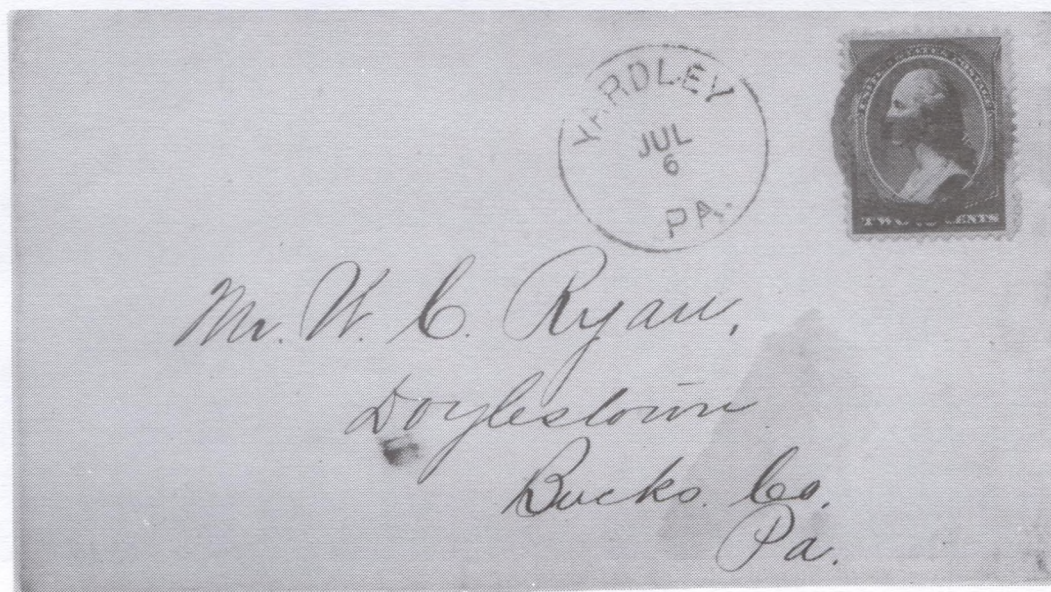 YARDLEY
JUL
6
PA.
UNITED STATES POSTAGE
TWO CENTS
Mr. W. C. Ryan,
Doylestown
Bucks. Co.
Pa.